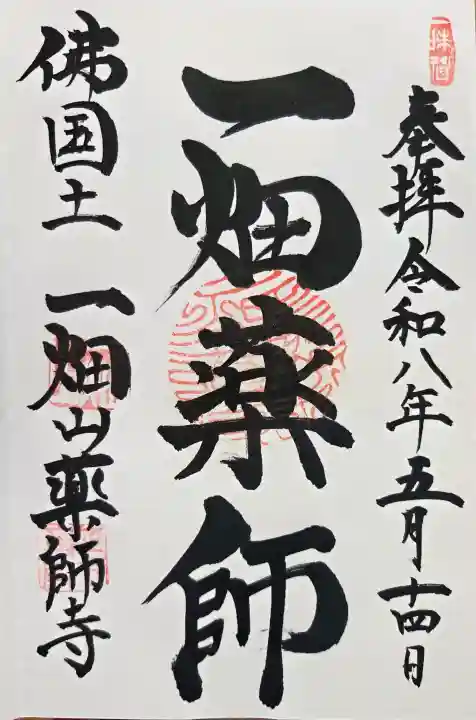 奉拜 令和八年五月十四日
一畑薬師
佛国土 一畑山薬師寺